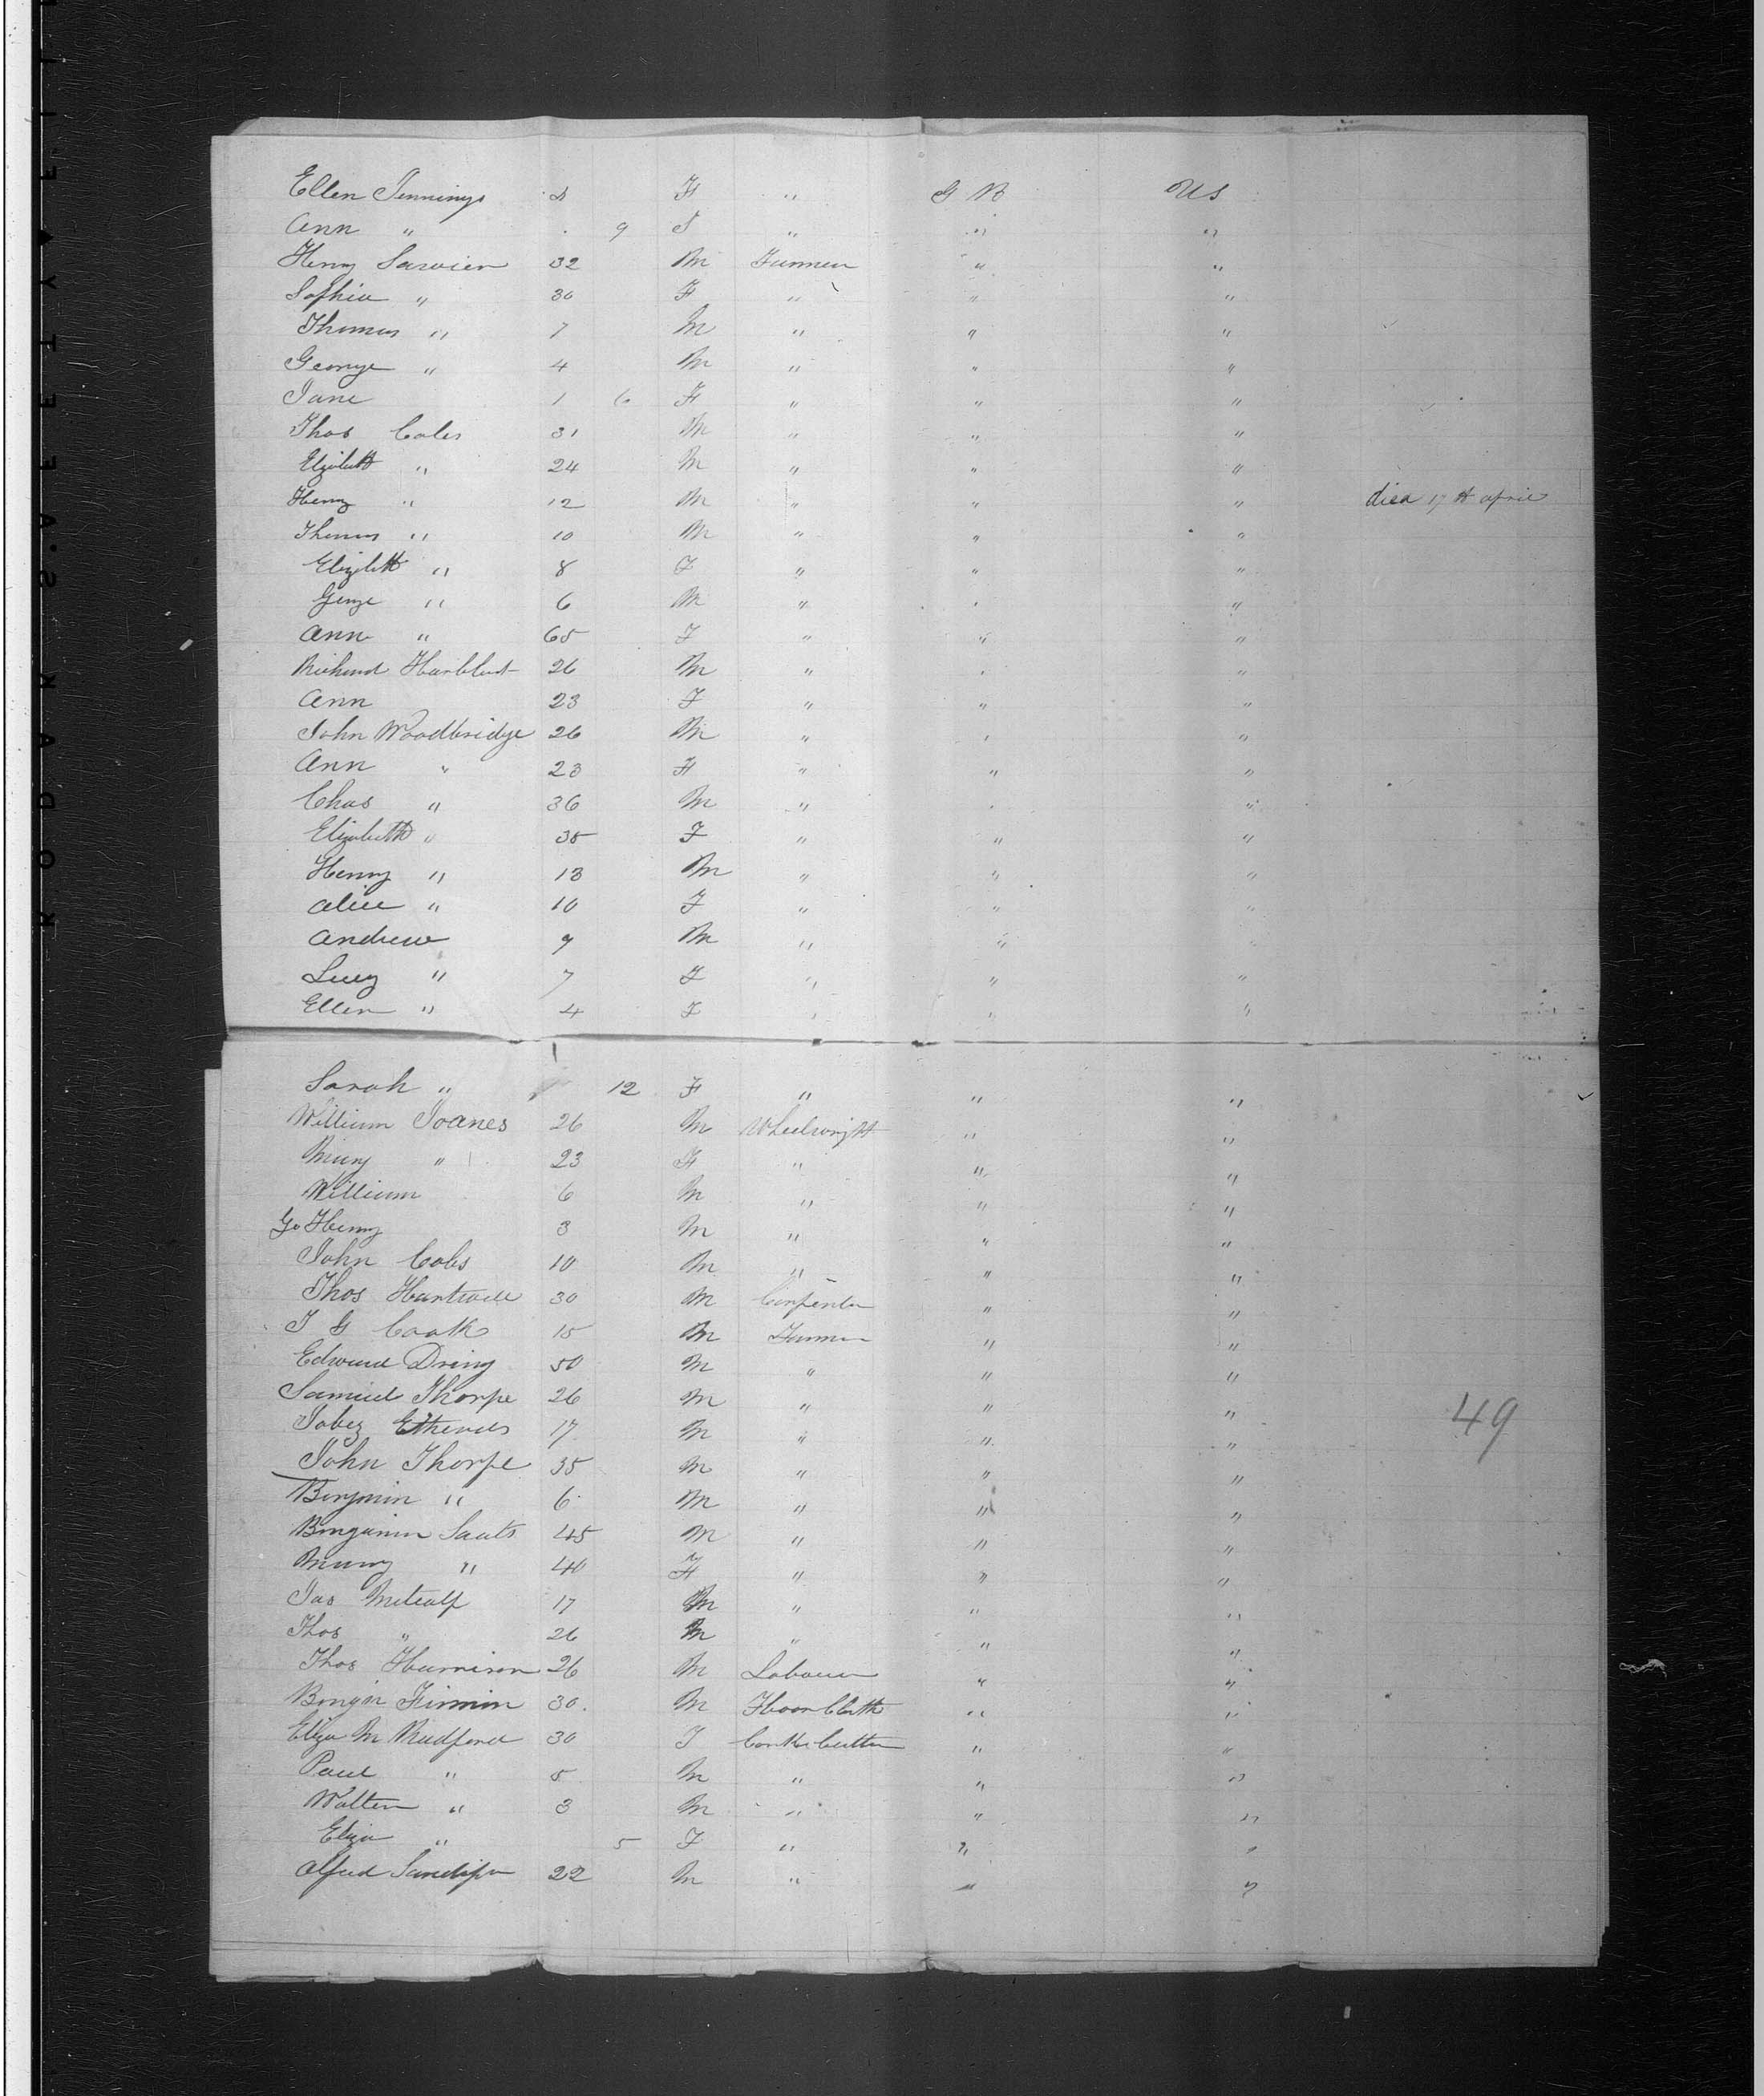 Ellen Jennings F " G B US
Ann " 9 " " "
Henry 32 M Farmer " "
Sophia " 30 F " " "
Thomas " 7 M " " "
George " 4 M " " "
Jane 1 6 F " " "
Thos Coles 31 M " " "
Elizabeth " 24 M " " "
Henry " 12 M " " " died 17th april
Thomas " 10 M " " "
Elizabeth " 8 F " " "
George " 6 M " " "
Ann " 65 F " " "
Richard 26 M " " "
Ann 23 F " " "
John Woodbridge 26 M " " "
Ann " 23 F " " "
Chas " 36 M " " "
Elizabeth " 35 F " " "
Henry " 13 M " " "
Alice " 10 F " " "
Andrew 9 M " " "
Lucy " 7 F " " "
Ellen " 4 F " " "
Sarah " 12 F " " "
William Joanes 26 M Wheelwright " "
Mary " 23 F " " "
William 6 M " " "
Go Henry 3 M " " "
John Cobs 10 M " " "
Thos 30 M Carpenter " "
15 M Farmer " "
Edward Dring 50 M " " "
Samuel Thorpe 26 M " " "
Jabez 17 M " " "
49
John Thorpe 35 M " " "
Benjmin " 6 M " " "
Bengamin 45 M " " "
Mary " 40 F " " "
Jas Metcalf 17 M " " "
Thos " 26 M " " "
Thos Harrison 26 M Labourer " "
Benjn Firmin 30 M " "
Eliza M 30 F " "
Paul " 5 M " " "
Walter " 3 M " " "
Eliza " 5 F " " "
Alfred 22 M " " "